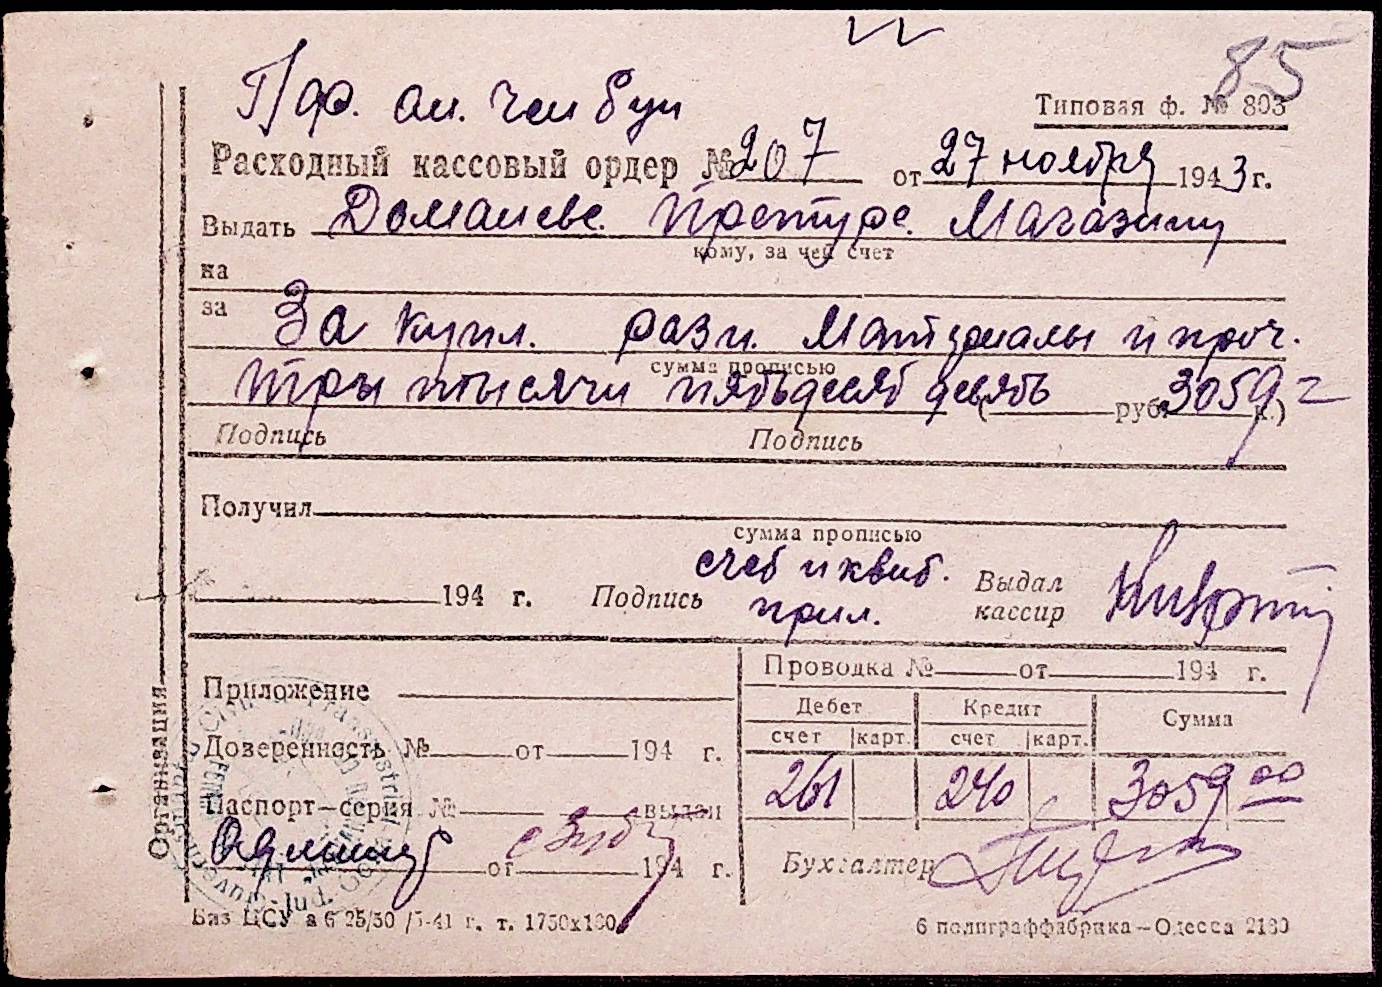 85
Типовая ф. № 803
Расходный кассовый ордер № 207 от 27 ноября 1943 г.
Выдать Доманевс. Претурс. Магазину
кому, за чей счет
на
за За купл. разн. Материалы и проч.
сумма прописью
три тысячи пядьдесяб девябь ( руб. 3059 к.)
Подпись Подпись
Получил
сумма прописью
счеб и квиб.
194 г. Подпись прил. Выдал кассир
Приложение
Доверенность № от 194 г.
Паспорт—серия № выдан
от 194 г.
Организация
Проводка № от 194 г.
Дебет Кредит Сумма
счет карт. счет карт.
261 240 3059 00
Бухгалтер
Биз ЦСУ а 6 25/30 /5-41 г. т. 1750х100
6 полиграффабрика—Одесса 2180